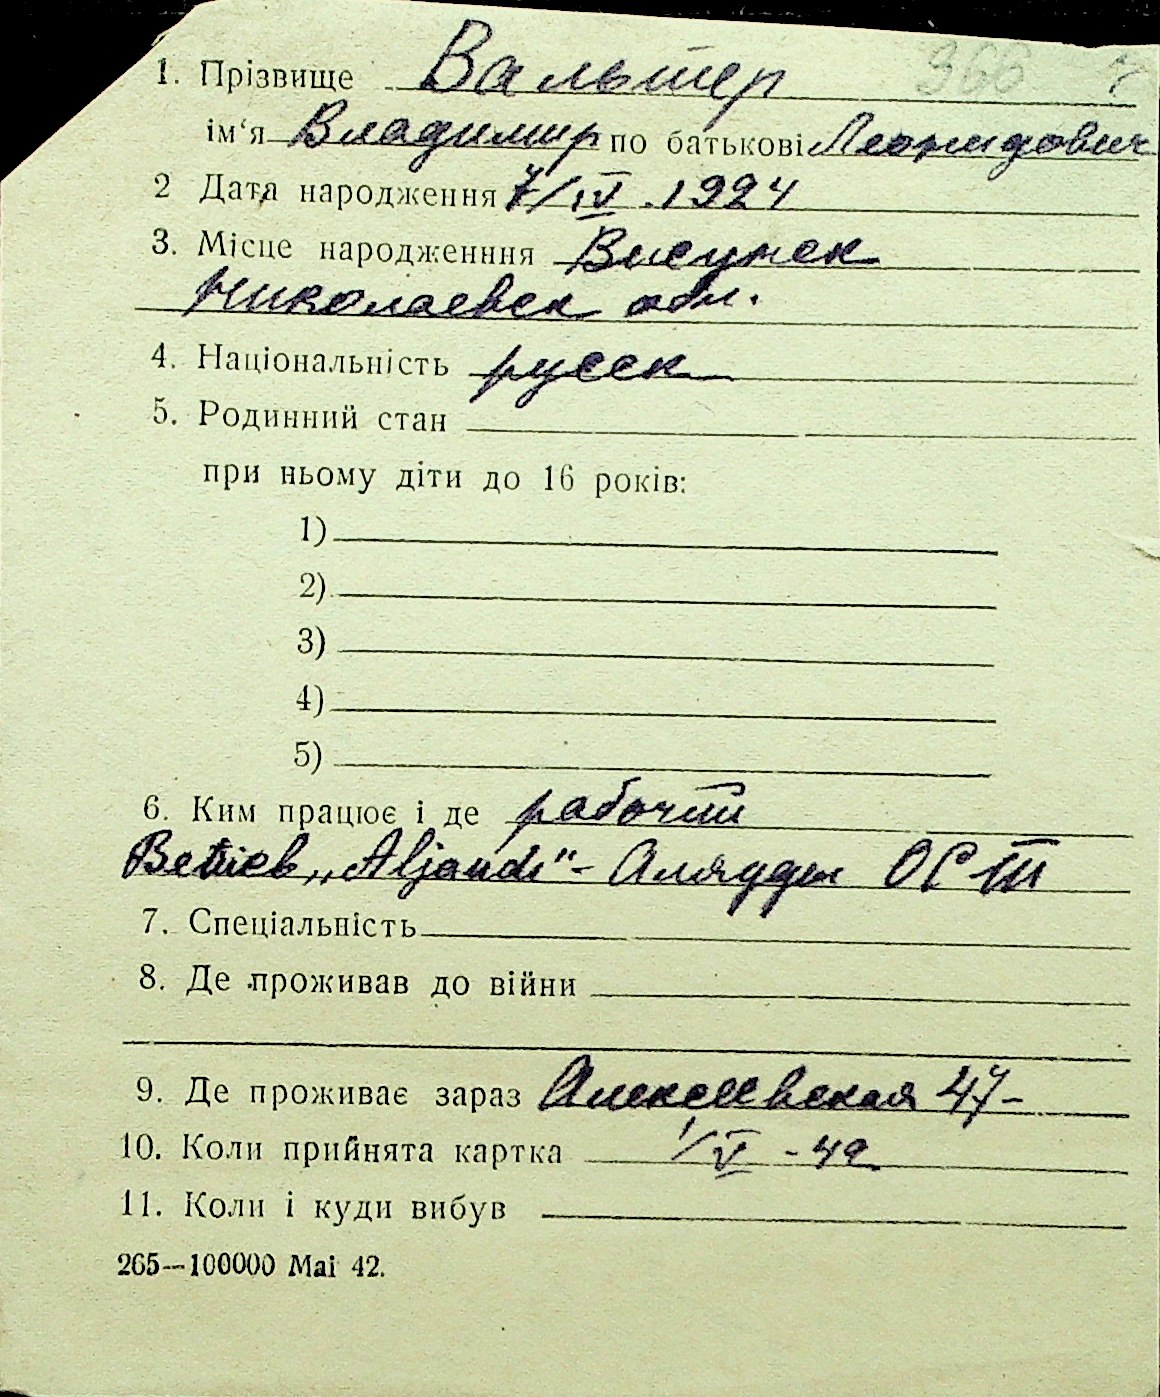 366
1. Прізвище Вальтер
ім‘я Владимир по батькові Леонидович
2 Дата народження 7/IV.1924
3. Місце народженння Висунск
Николаевск обл.
4. Національність русск
5. Родинний стан
при ньому діти до 16 років:
1)
2)
3)
4)
5)
6. Ким працює і де рабочий
Betrieb „Aljaudi“ - Аляудди
7. Спеціальність
8. Де проживав до війни
9. Де проживає зараз Алексеевская 47-
10. Коли прийнята картка 1/V - 42
11. Коли і куди вибув
265—100000 Mai 42.